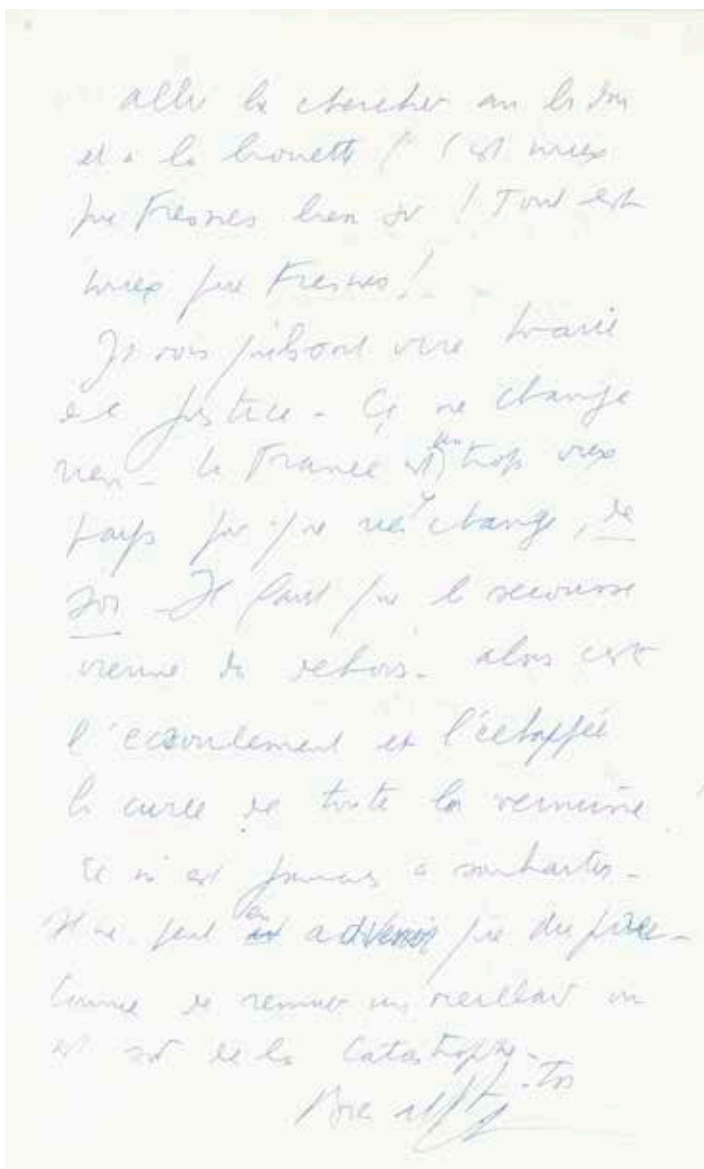 aller la chercher au
et à la brouette ! C'est mieux
que Fresnes bien sûr ! Tout est
mieux que Fresnes !
Je vois vie
de justice - Ça ne change
rien - la France est un trop vieux
pays pour que rien y change, de
soi - Il faut que la secousse
vienne du dehors - alors c'est
l'écroulement et l'échappée
la curée de toute la vermine
Ce n'est jamais à souhaiter -
Il ne peut en advenir que du pire -
Comme de remuer un vieillard on
est sûr de la catastrophe -